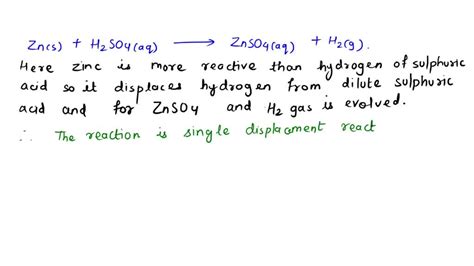 Zn(s) + H2SO4(aq) ⟶ ZnSO4(aq) + H2(g).
Here zinc is more reactive than hydrogen of sulphuric
acid so it displaces hydrogen from dilute sulphuric
acid and for ZnSO4 and H2 gas is evolved.
∴ The reaction is single displacment react